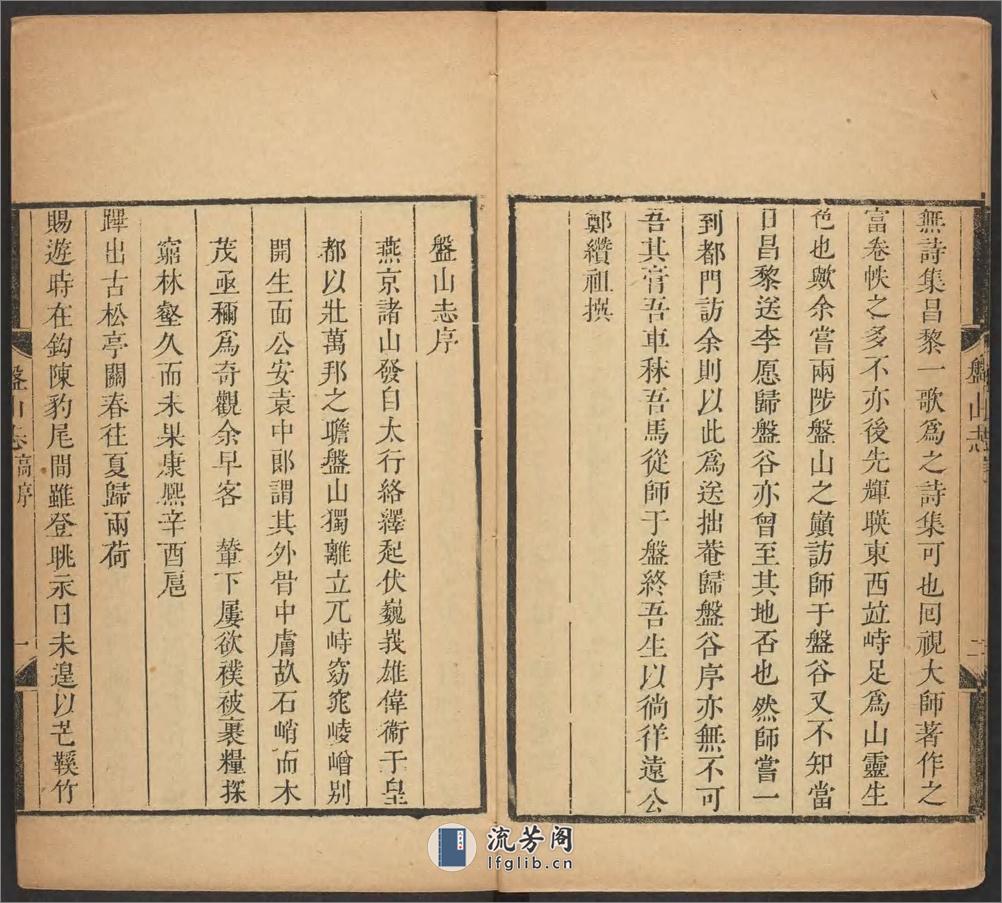 無詩集昌黎一歌爲之詩集可也囘視大師著作之
富卷帙之多不亦後先輝暎東西竝峙足爲山靈生
色也歟余嘗兩陟盤山之巔訪師于盤谷又不知當
日昌黎送李愿歸盤谷亦曾至其地否也然師嘗一
到都門訪余則以此爲送拙菴歸盤谷序亦無不可
吾其膏吾車秣吾馬從師于盤終吾生以徜徉遠公
鄭纘祖撰
盤山志
二
盤山志序
燕京諸山發自太行絡繹起伏巍峩雄偉衞于皇
都以壯萬邦之瞻盤山獨離立兀峙窈窕崚嶒別
開生面公安袁中郎謂其外骨中膚故石峭而木
茂亟稱爲奇觀余早客　輦下屢欲襆被裹糧探
窮林壑久而未果康熙辛酉扈
蹕出古松亭關春往夏歸兩荷
賜遊時在鈎陳豹尾間雖登眺永日未遑以芒鞵竹
盤山志 序
一
流芳阁
lfglib.cn